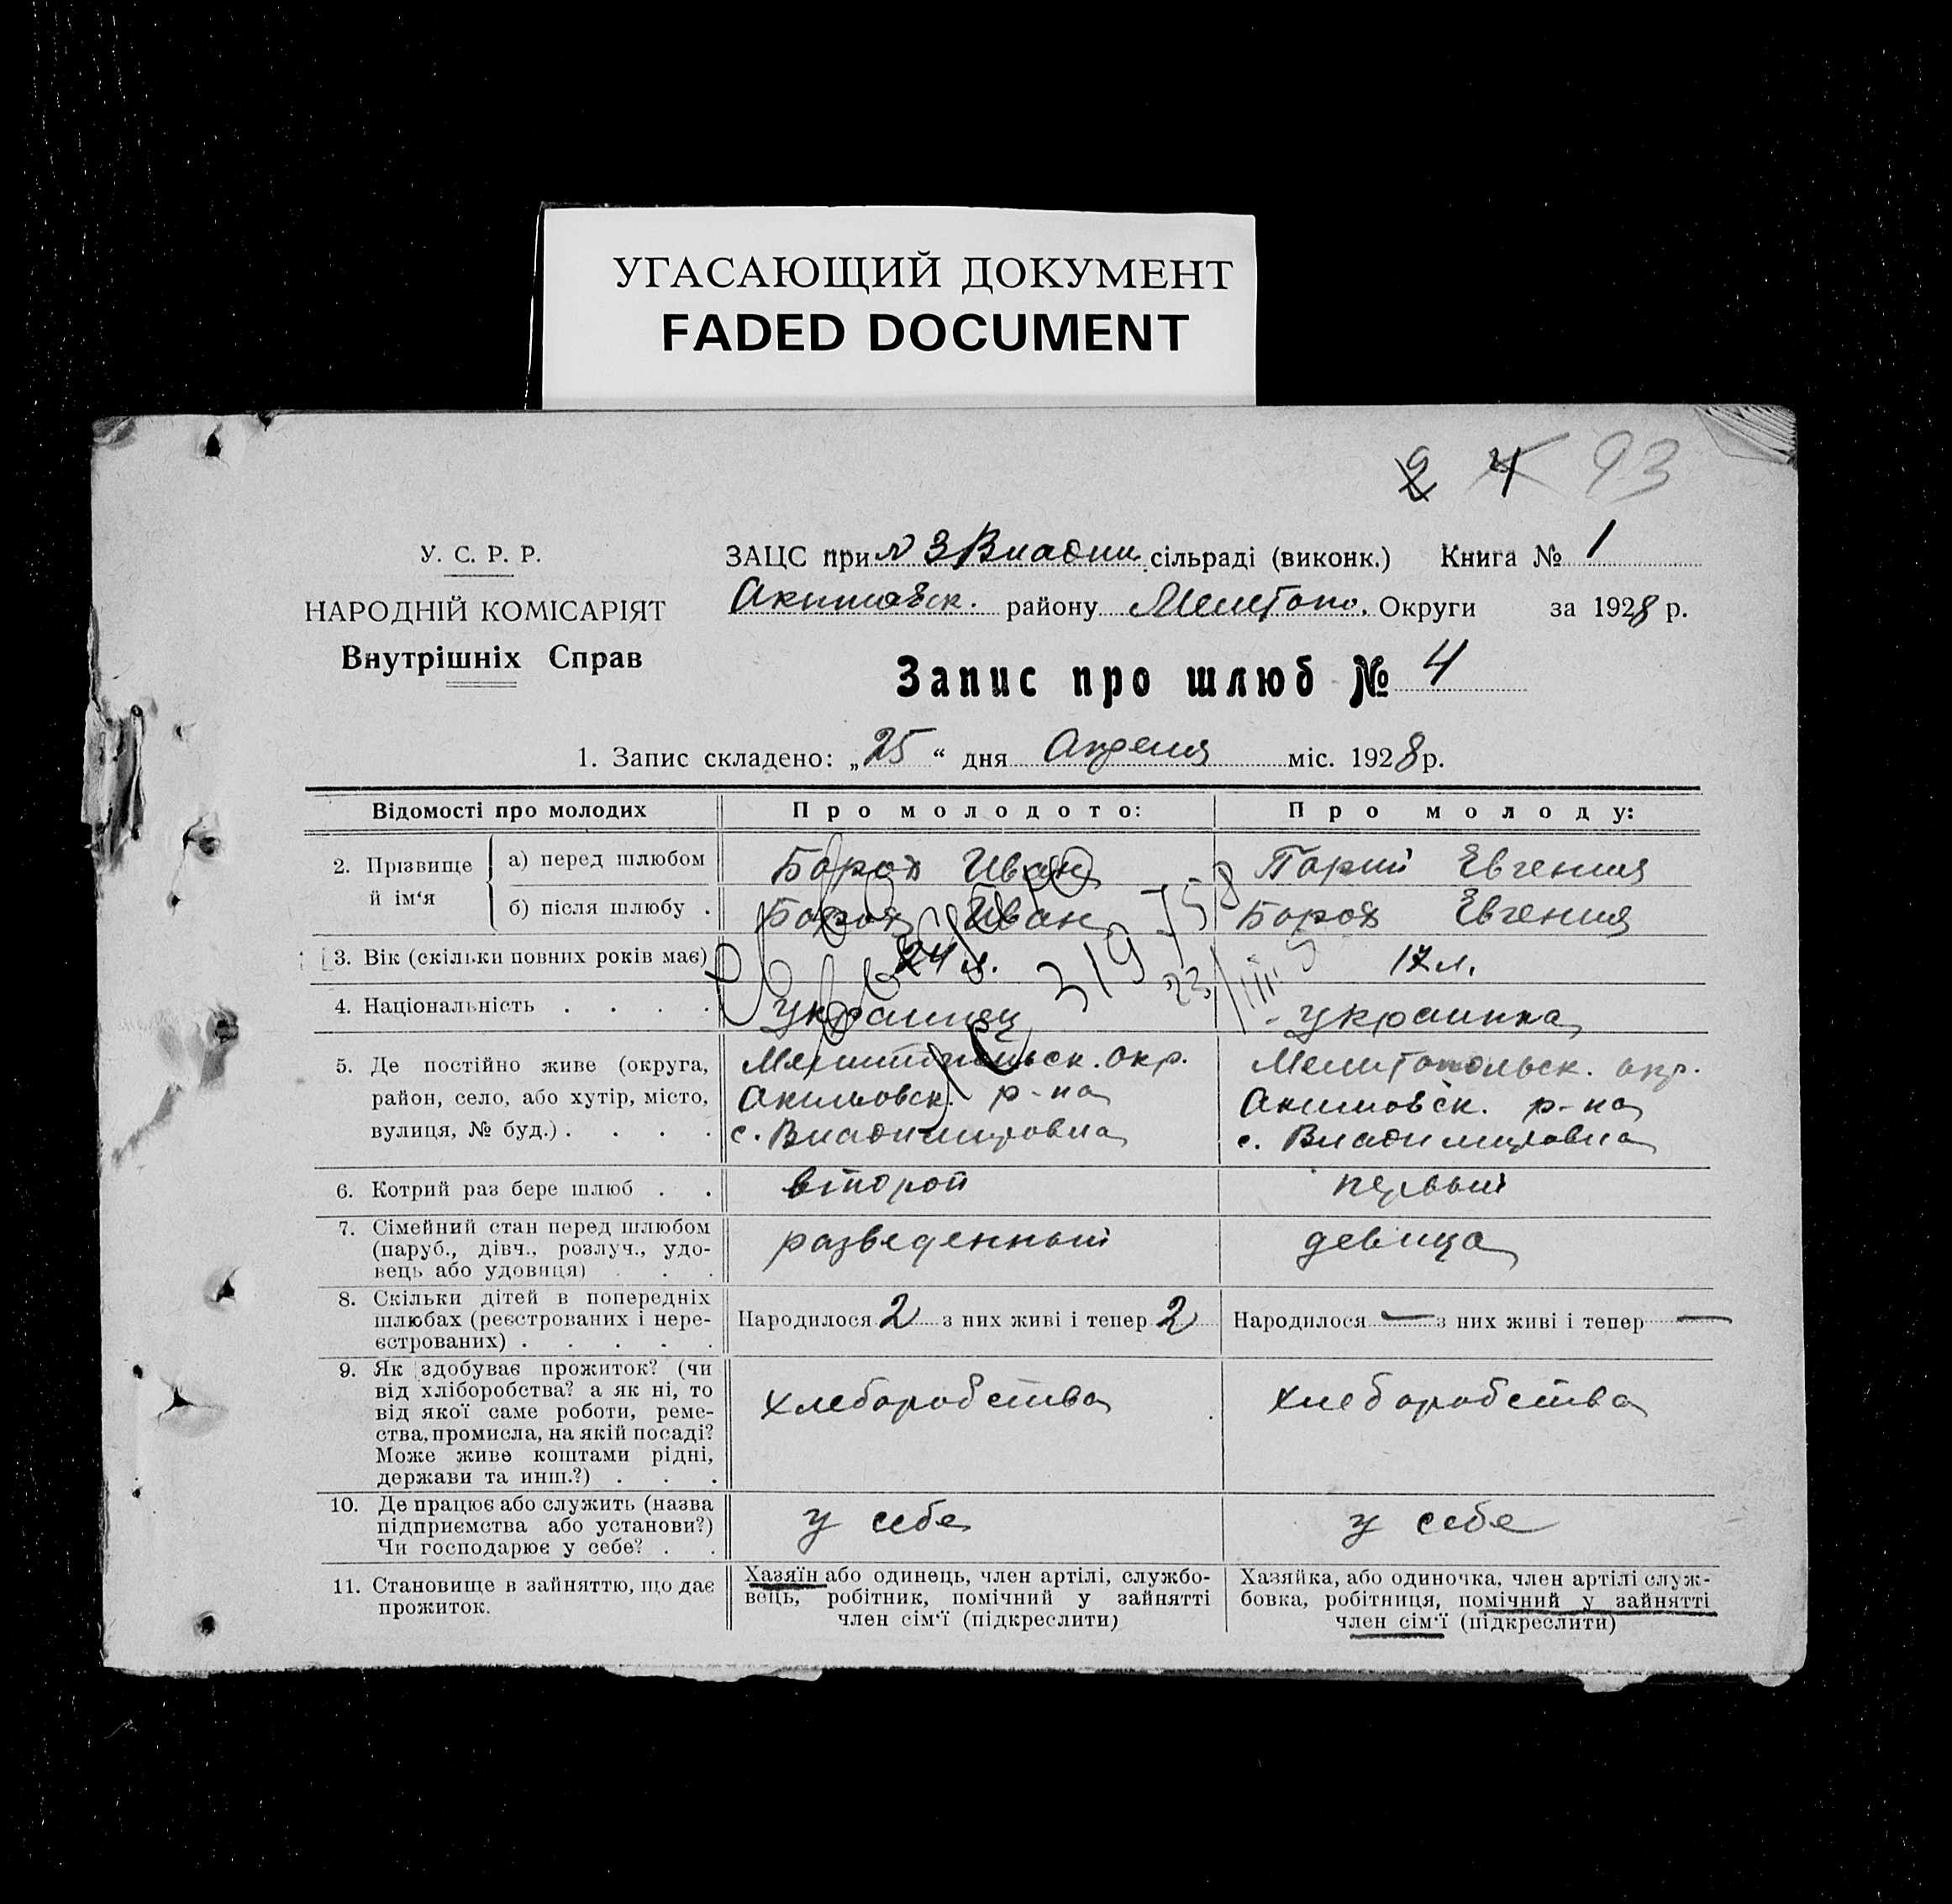 УГАСАЮЩИЙ ДОКУМЕНТ
FADED DOCUMENT
2 4 93
У. С. Р. Р.
НАРОДНІЙ КОМІСАРІЯТ
Внутрішніх Справ
ЗАЦС при № 3 Владим. сільраді (виконк.) Книга № 1
Акимовск. району Мелитоп. Округи за 1928 р.
Запис про шлюб № 4
1. Запис складено: „25“ дня Апреля міс. 1928 р.
Відомості про молодих
Про молодого:
Про молоду:
2. Прізвище й ім‘я
а) перед шлюбом
Борох Иван
Парий Евгения
б) після шлюбу .
Борох Иван
Борох Евгения
3. Вік (скільки повних років має)
24 л.
17 л.
319758
23/III
4. Національність . . . .
украинец
украинка
5. Де постійно живе (округа,
район, село, або хутір, місто,
вулиця, № буд.) . . . .
Мелитопольск. окр.
Акимовск. р-на
с. Владимировка
Мелитопольск. окр.
Акимовск. р-на
с. Владимировка
6. Котрий раз бере шлюб . .
второй
первый
7. Сімейний стан перед шлюбом
(паруб., дівч., розлуч., удо-
вець або удовиця) . . .
разведенный
девица
8. Скільки дітей в попередніх
шлюбах (реєстрованих і нере-
єстрованих) . . . . .
Народилося 2 з них живі і тепер 2
Народилося — з них живі і тепер —
9. Як здобуває прожиток? (чи
від хліборобства? а як ні, то
від якої саме роботи, реме-
ства, промисла, на якій посаді?
Може живе коштами рідні,
держави та инш.?) . . .
хлеборобства
хлеборобства
10. Де працює або служить (назва
підприємства або установи?)
Чи господарює у себе? . .
у себе
у себе
11. Становище в зайняттю, що дає
прожиток.
Хазяїн або одинець, член артілі, службо-
вець, робітник, помічний у зайнятті
член сім‘ї (підкреслити)
Хазяйка, або одиночка, член артілі служ-
бовка, робітниця, помічний у зайнятті
член сім‘ї (підкреслити)